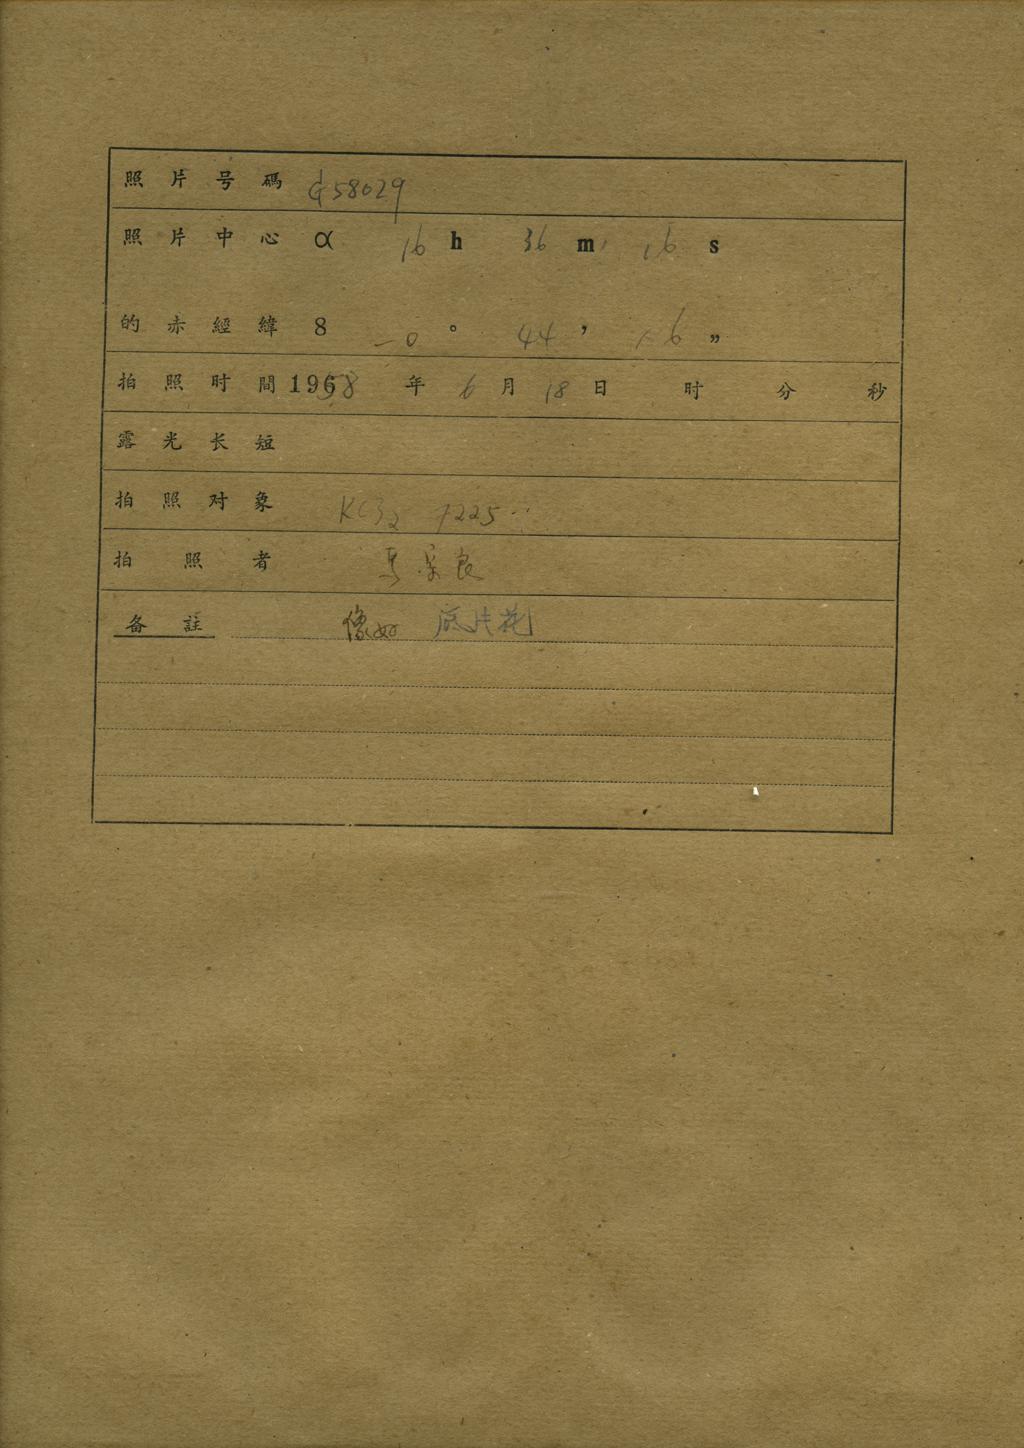 照片号碼 G58029
照片中心 α 16 h 36 m 16 s
的赤經緯 8 -0 ° 44 ’ 6 ”
拍照时間 1958 年 6 月 18 日 时 分 秒
露光长短
拍照对象 7225
拍照者
备註 像好 底片花